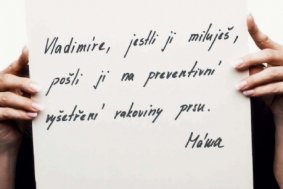 Vladimíre, jestli ji miluješ,
pošli ji na preventivní
vyšetření rakoviny prsu.
Máma